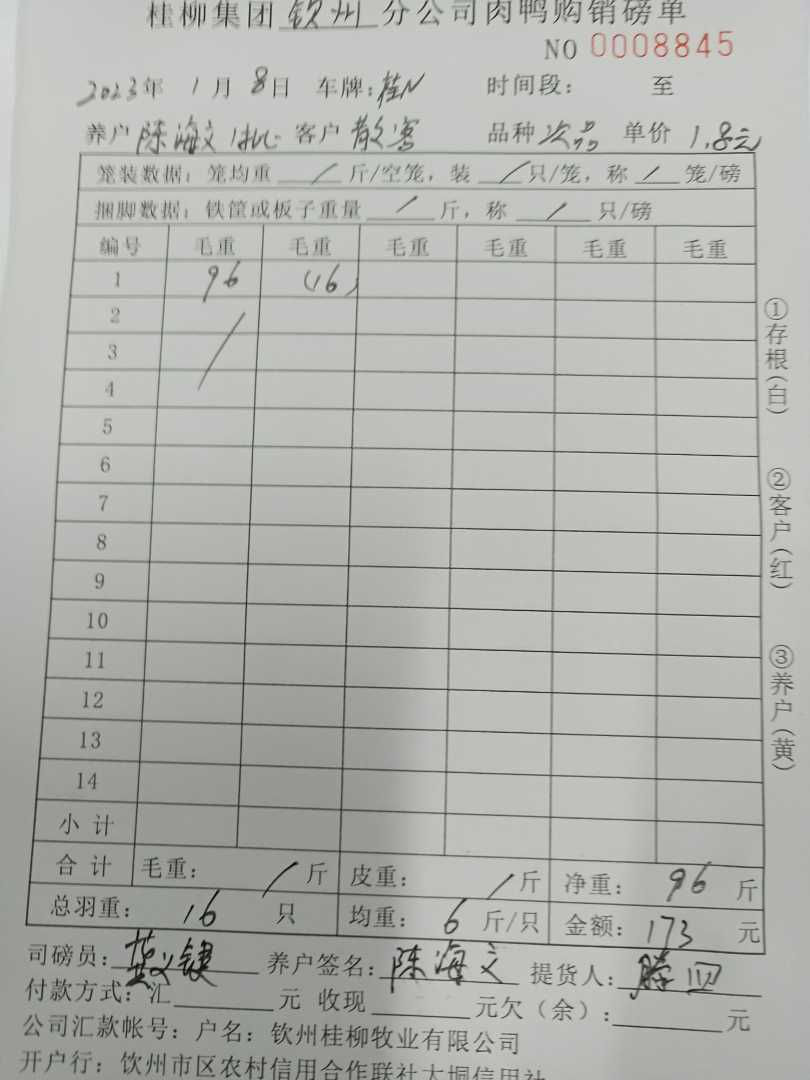 桂柳集团 钦州 分公司肉鸭购销磅单
NO 0008845
2023年 1月 8日 车牌：桂N 时间段： 至
养户 陈海文 客户 散客 品种 次品 单价 1.8元
笼装数据：笼均重 / 斤/空笼，装 / 只/笼，称 / 笼/磅
捆脚数据：铁筐或板子重量 / 斤，称 / 只/磅
编号 毛重 毛重 毛重 毛重 毛重 毛重
1 96 (16)
2
3
4
5
6
7
8
9
10
11
12
13
14
小计
合计 毛重： / 斤 皮重： / 斤 净重： 96 斤
总羽重： 16 只 均重： 6 斤/只 金额： 173 元
司磅员： 养户签名：陈海文 提货人：
付款方式：汇 元 收现 元欠（余）： 元
公司汇款帐号：户名：钦州桂柳牧业有限公司
开户行：钦州市区农村信用合作联社大垌信用社
①存根（白）
②客户（红）
③养户（黄）